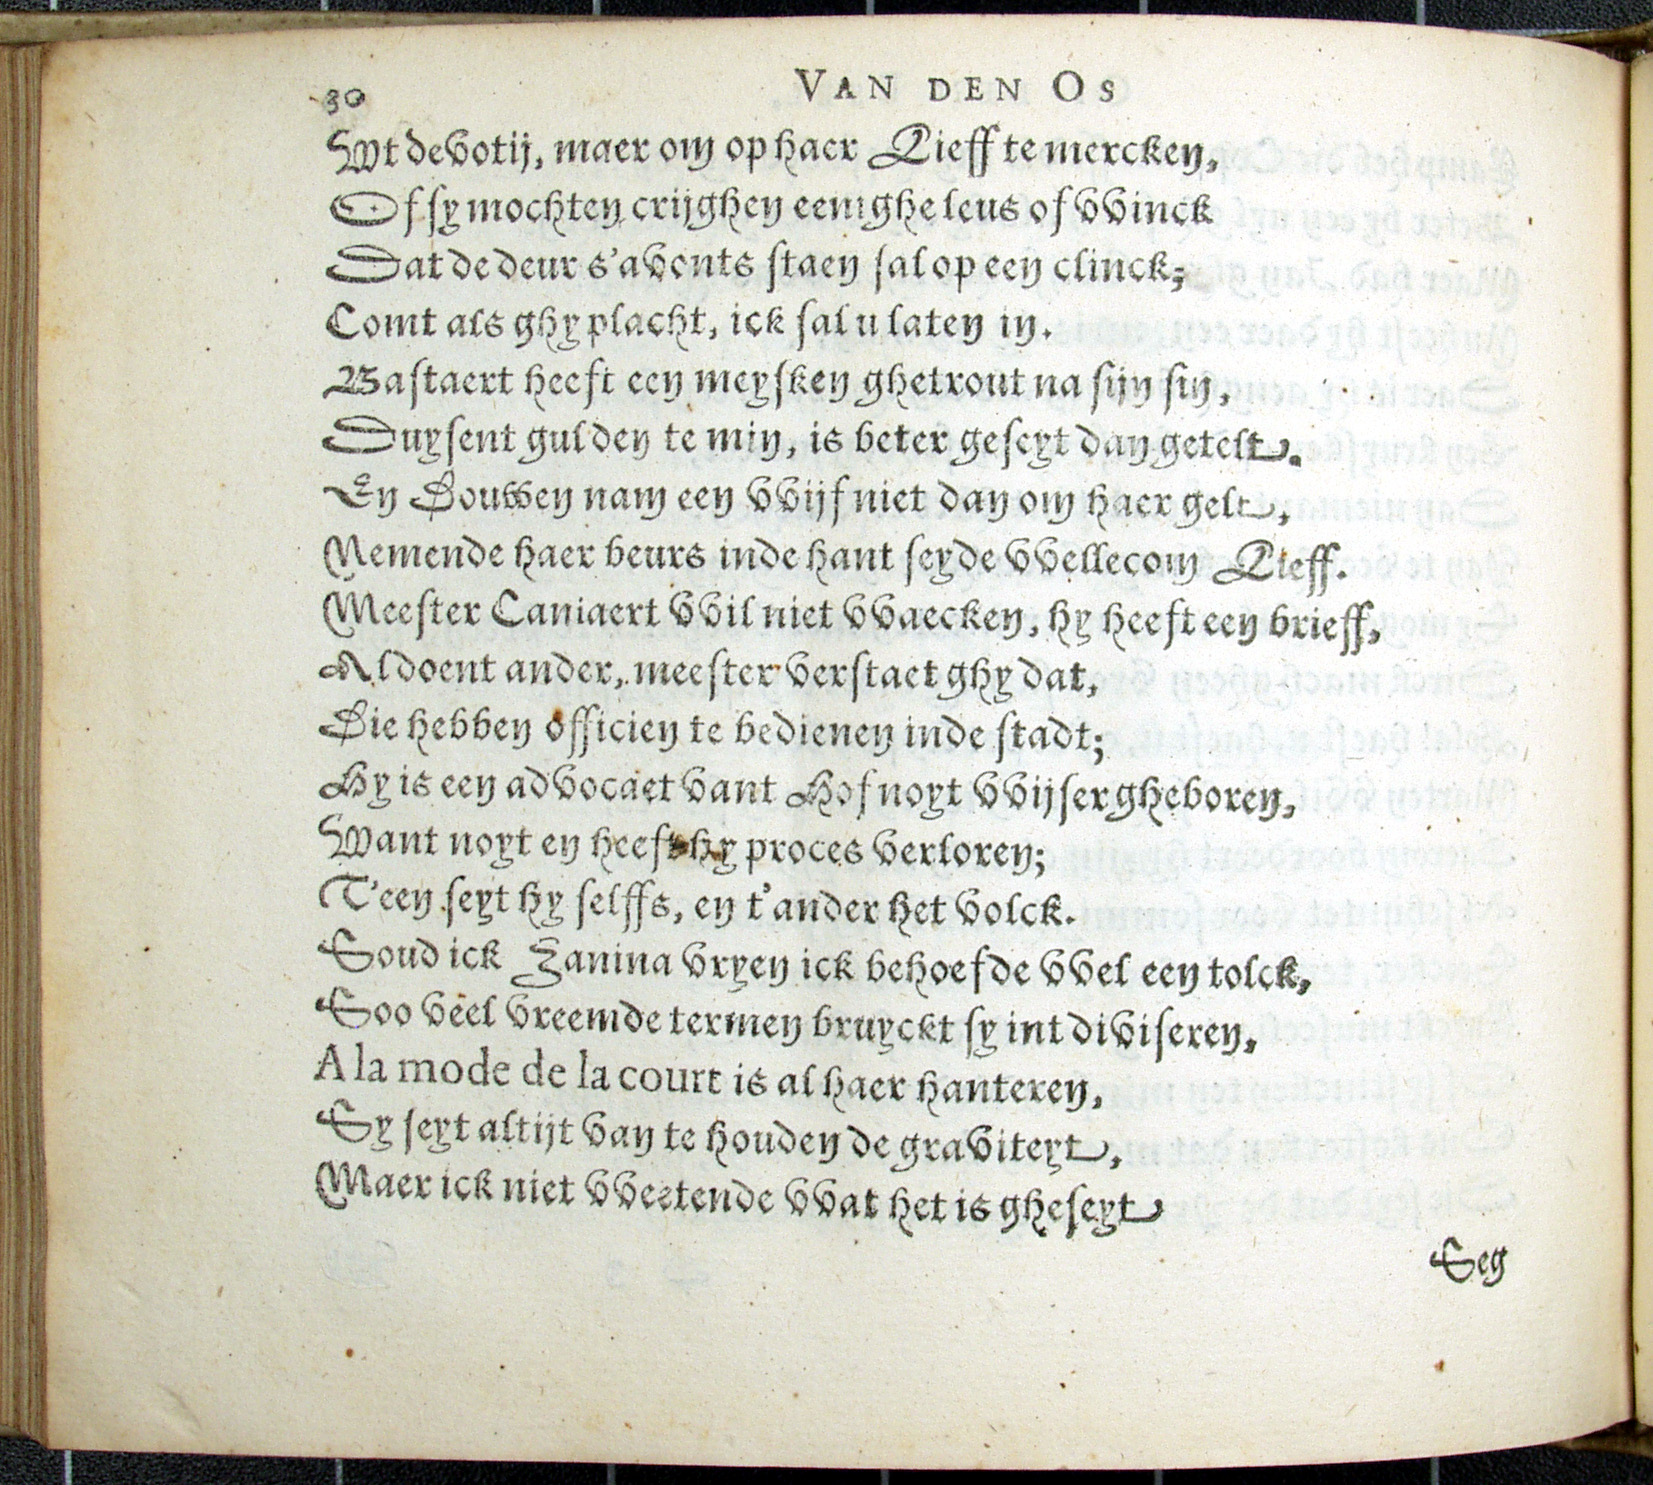 30 VAN DEN OS
Wt devotij, maer om op haer Lieff te mercken,
Of sy mochten crijghen eenighe leus of vvinck
Dat de deur s'avonts staen sal op een clinck;
Comt als ghy placht, ick sal u laten in.
Bastaert heeft een meysken ghetrout na sijn sin,
Duysent gulden te min, is beter geseyt dan getelt.
En Douwen nam een vvijf niet dan om haer gelt,
Nemende haer beurs inde hant seyde vvellecom Lieff.
Meester Caniaert vvil niet vvaecken, hy heeft een brieff,
Al doent ander, meester verstaet ghy dat,
Die hebben officien te bedienen inde stadt;
Hy is een advocaet vant Hof noyt vvijser gheboren,
Want noyt en heeft hy proces verloren;
T'een seyt hy selffs, en t'ander het volck.
Soud ick Zanina vryen ick behoefde vvel een tolck,
Soo veel vreemde termen bruyckt sy int diviseren,
A la mode de la court is al haer hanteren,
Sy seyt altijt van te houden de graviteyt,
Maer ick niet vveetende vvat het is gheseyt
Seg